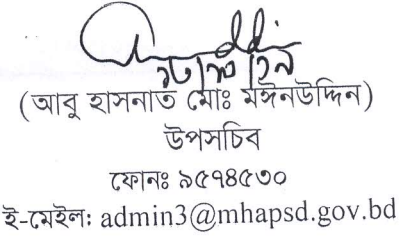 (আবু হাসনাত মোঃ মঈনউদ্দিন)
উপসচিব
ফোনঃ ৯৫৭৪৫৩০
ই-মেইল: admin3@mhapsd.gov.bd